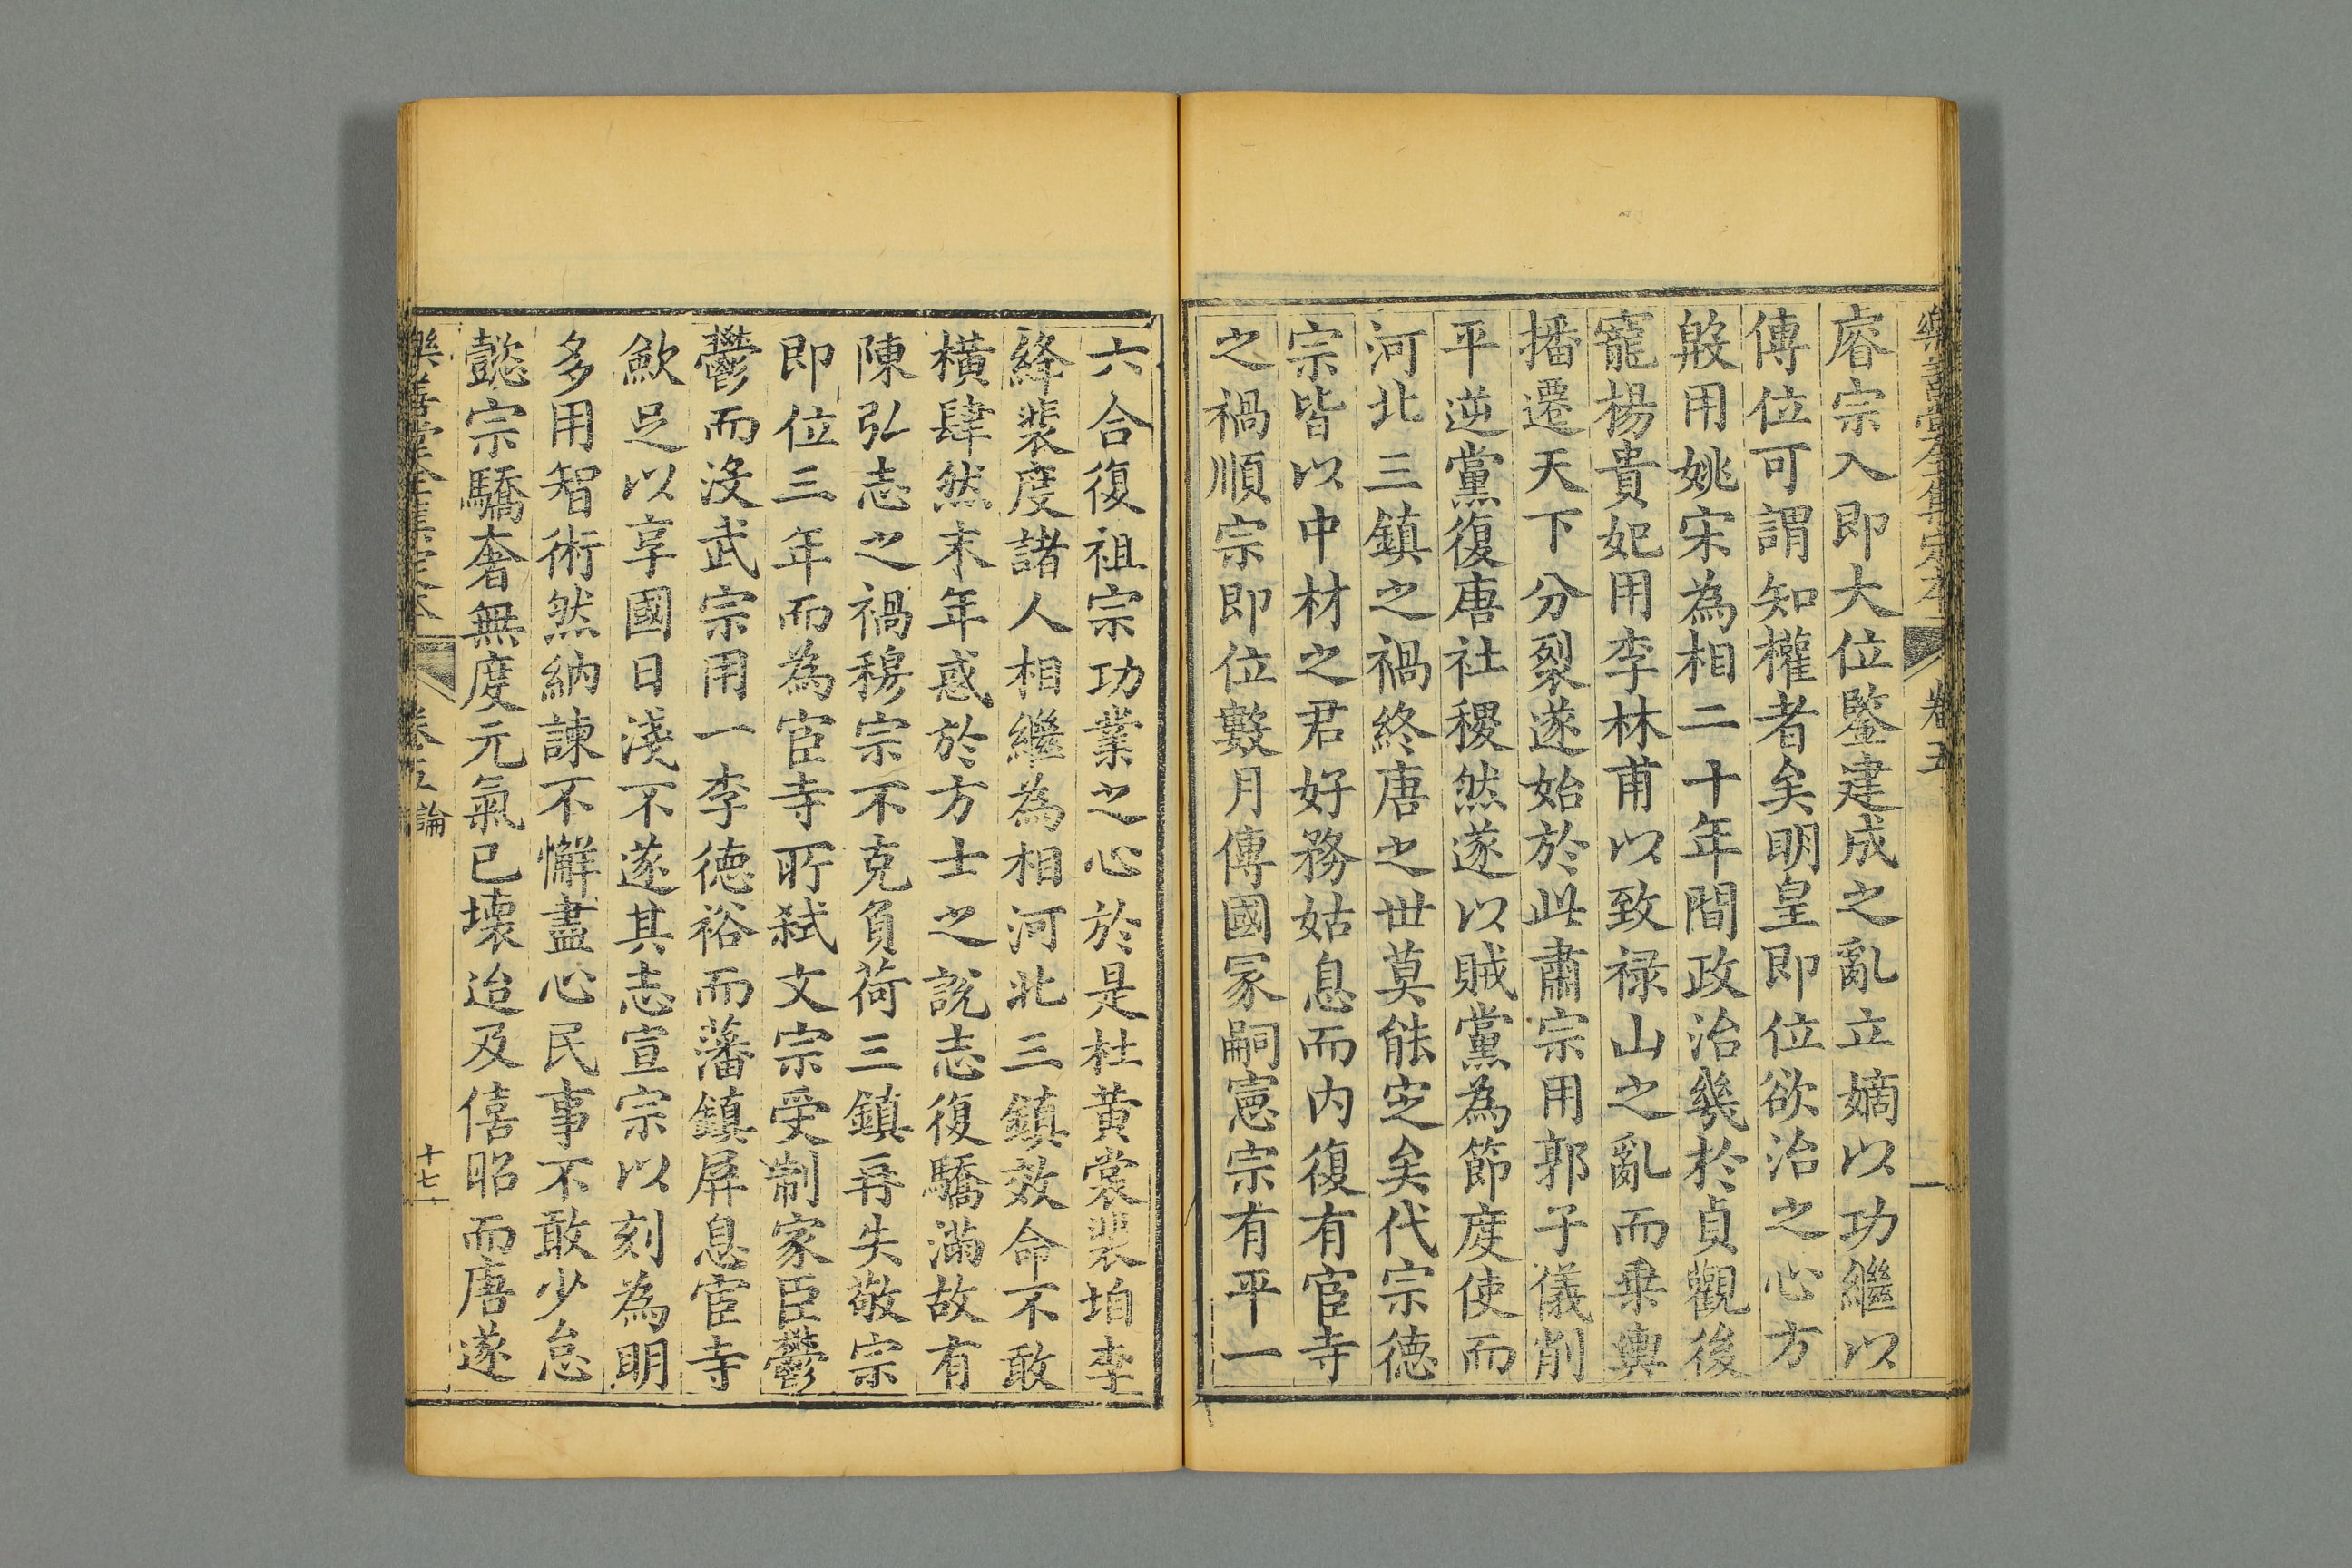 樂善堂全集定本 卷五
睿宗入即大位鑒建成之亂立嫡以功繼以
傳位可謂知權者矣明皇即位欲治之心方
殷用姚宋為相二十年間政治幾於貞觀後
寵楊貴妃用李林甫以致祿山之亂而乗輿
播遷天下分裂遂始於此肅宗用郭子儀削
平逆黨復唐社稷然遂以賊黨為節度使而
河北三鎮之禍終唐之世莫能定矣代宗德
宗皆以中材之君好務姑息而内復有宦寺
之禍順宗即位數月傳國冡嗣憲宗有平一
六合復祖宗功業之心於是杜黄裳裴垍李
絳裴度諸人相繼為相河北三鎮效命不敢
橫肆然末年惑於方士之說志復驕滿故有
陳弘志之禍穆宗不克負荷三鎮再失敬宗
即位三年而為宦寺所弑文宗受制家臣鬱
鬱而沒武宗用一李德裕而藩鎮屏息宦寺
歛足以享國日淺不遂其志宣宗以刻為明
多用智術然納諫不懈盡心民事不敢少怠
懿宗驕奢無度元氣已壞迨及僖昭而唐遂
樂善堂全集定本 卷五 論 十七